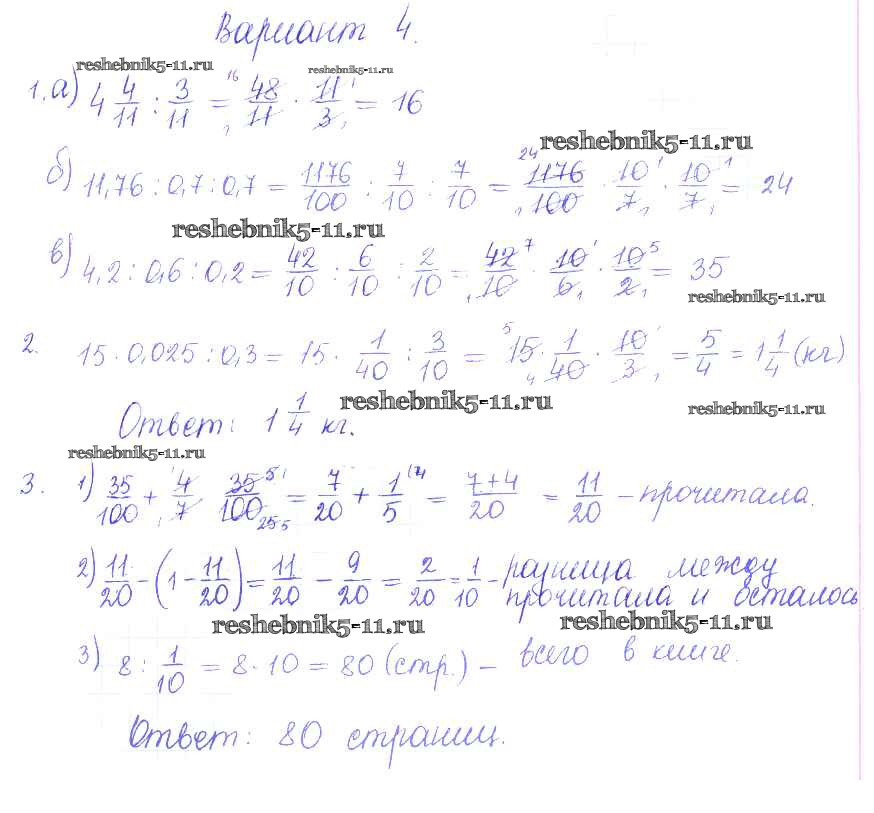 Вариант 4.
reshebnik5-11.ru
reshebnik5-11.ru
1. а) 4 4/11 : 3/11 = 48/11 · 11/3 = 16
reshebnik5-11.ru
б) 11,76 : 0,7 : 0,7 = 1176/100 : 7/10 : 7/10 = 1176/100 · 10/7 · 10/7 = 24
reshebnik5-11.ru
в) 4,2 : 0,6 : 0,2 = 42/10 : 6/10 : 2/10 = 42/10 · 10/6 · 10/2 = 35
reshebnik5-11.ru
2. 15 · 0,025 : 0,3 = 15 · 1/40 : 3/10 = 15 · 1/40 · 10/3 = 5/4 = 1 1/4 (кг)
reshebnik5-11.ru
reshebnik5-11.ru
Ответ: 1 1/4 кг.
reshebnik5-11.ru
3. 1) 35/100 + 4/7 35/100 = 7/20 + 1/5 = 7+4/20 = 11/20 – прочитала.
2) 11/20 – (1 – 11/20) = 11/20 – 9/20 = 2/20 = 1/10 – разница между
прочитала и осталось
reshebnik5-11.ru
reshebnik5-11.ru
3) 8 : 1/10 = 8 · 10 = 80 (стр.) – всего в книге.
Ответ: 80 страниц.